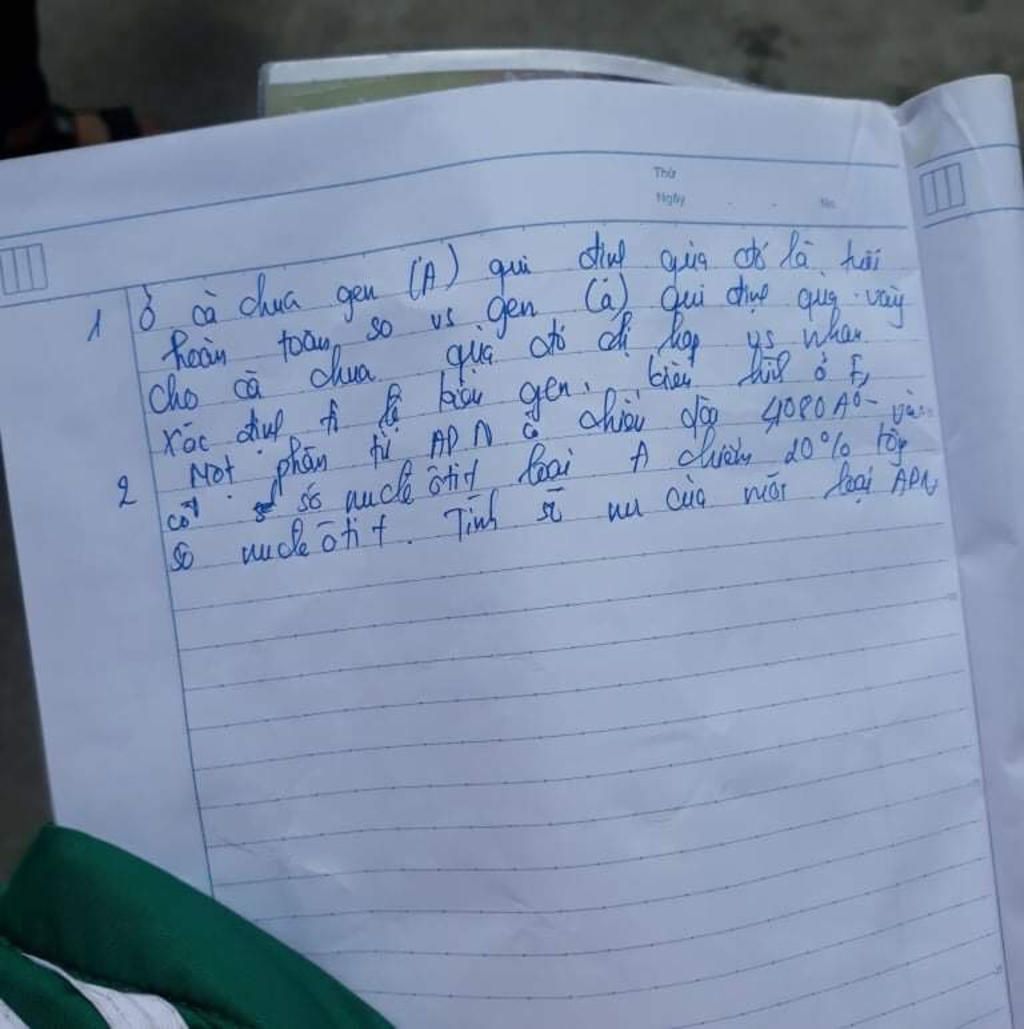 Thứ
Ngày No.
1 Ở cà chua gen (A) qui định quả đỏ là trội
hoàn toàn so vs gen (a) qui định quả vàng
cho cà chua quả đỏ dị hợp vs nhau
xác định tỉ lệ kiểu gen, kiểu hình ở F1
2 Một phân tử ADN có chiều dài 4080A0 và
có số nuclêôtit loại A chiếm 20% tổng
số nuclêôtit. Tính số nu của mỗi loại ADN